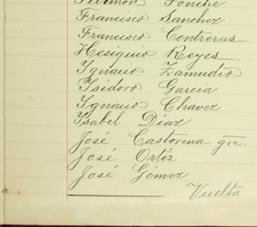 Fermín Ponche
Francisco Sanchez
Francisco Contreras
Hesiquio Reyes
Ygnacio Zamudio
Ysidoro Garcia
Ygnacio Chavez
Ysabel Diaz
José Castorena gre.
José Ortiz
José Gómez
Vuelta